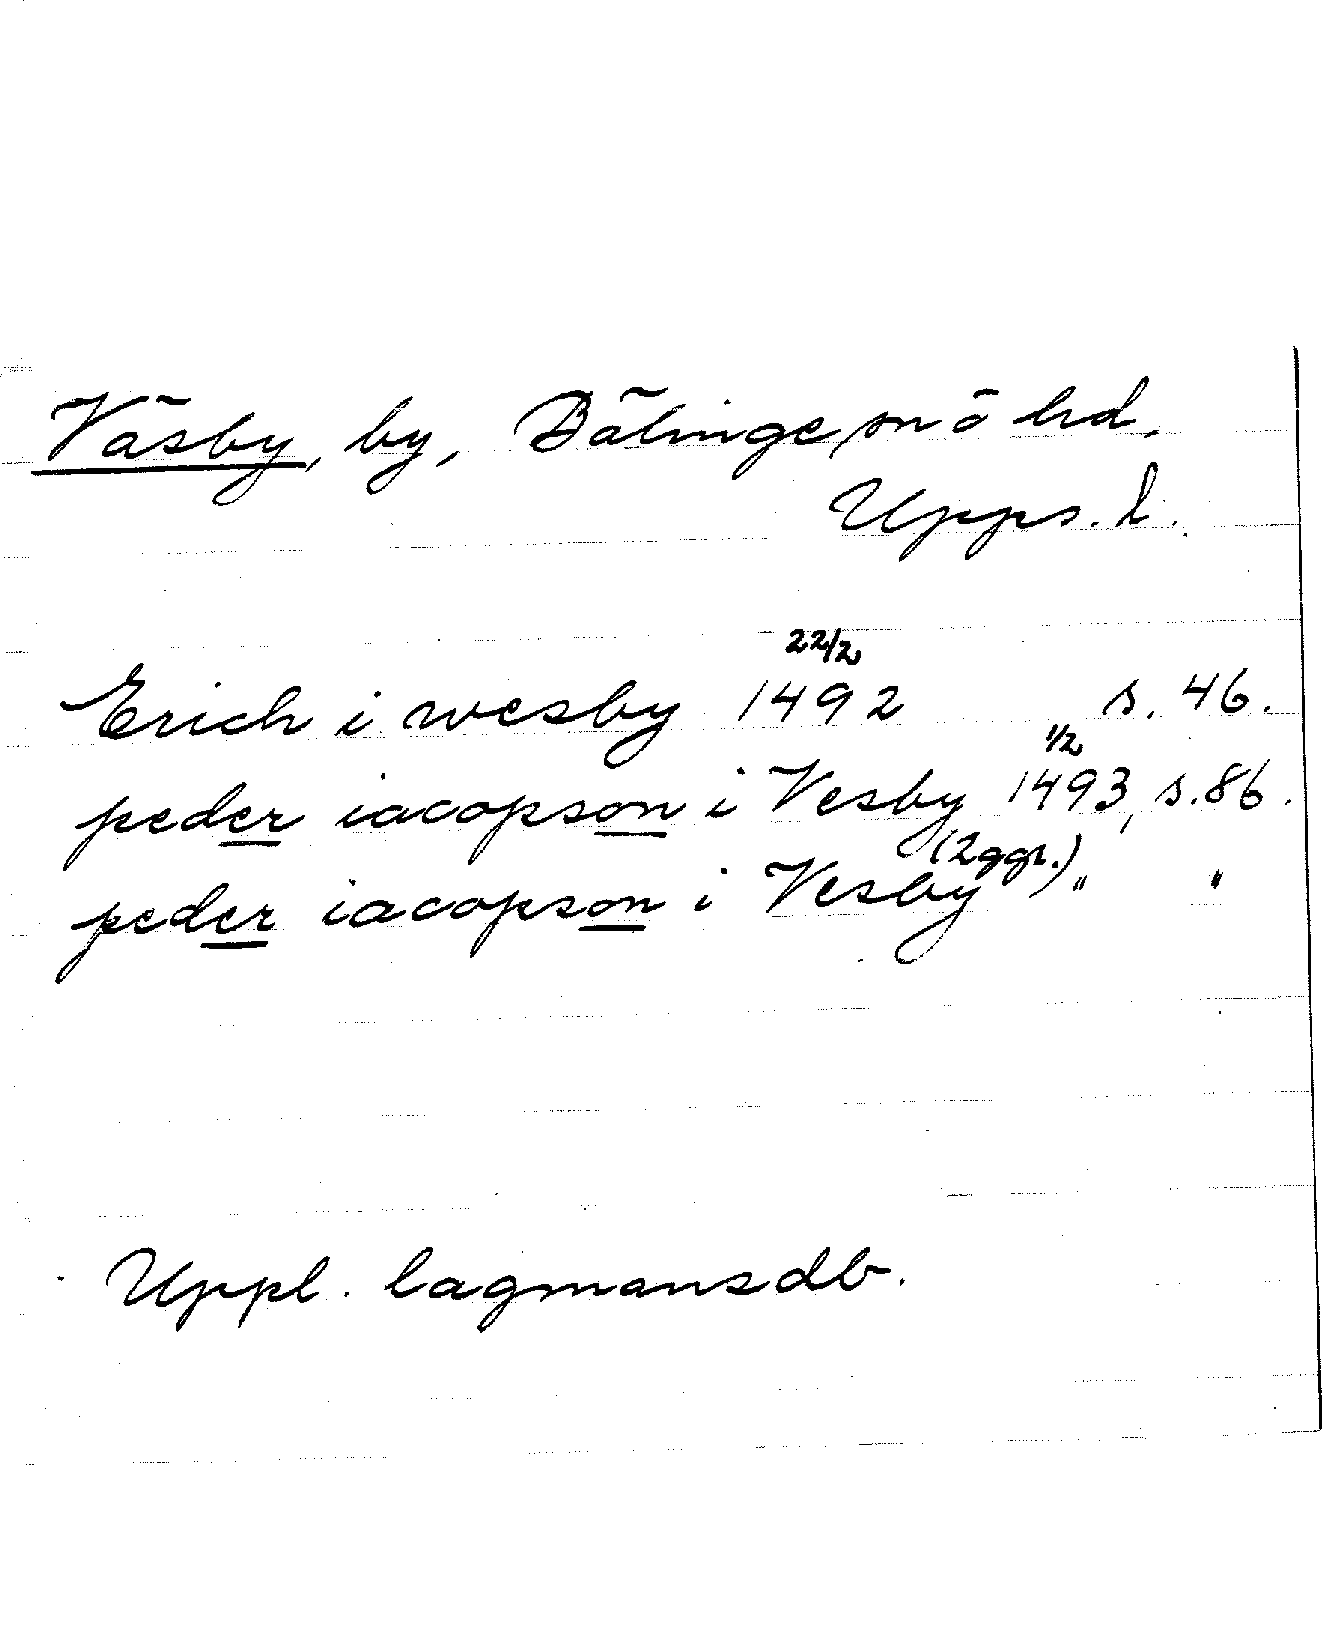 Väsby, by, Bälinge sn o hd,
Upps. l.
22/2
Erich i wesby 1492 s. 46.
1/2
peder iacopson i Vesby 1493, s. 86.
peder iacopson i Vesby (2 ggr.) " "
Uppl. lagmansdb.